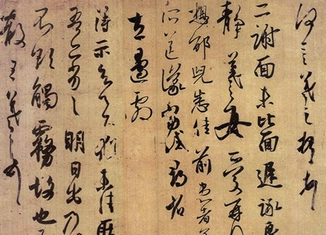 何言羲之頓首
二謝面未比面遲詠良
静羲之女愛再拜
想邵兒悉佳前患者善
所送議當試尋省
左邊劇
得示知足下猶未佳耿
吾亦劣劣明日出乃
不欲觸霧故也遲
散王羲之頓首